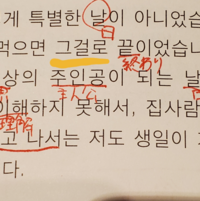 게 특별한 날이 아니었습
日
먹으면 그걸로 끝이었습니
終わり
상의 주인공이 되는 날
主人公
이해하지 못해서, 집사람
理解
고 나서는 저도 생일이 기
다.